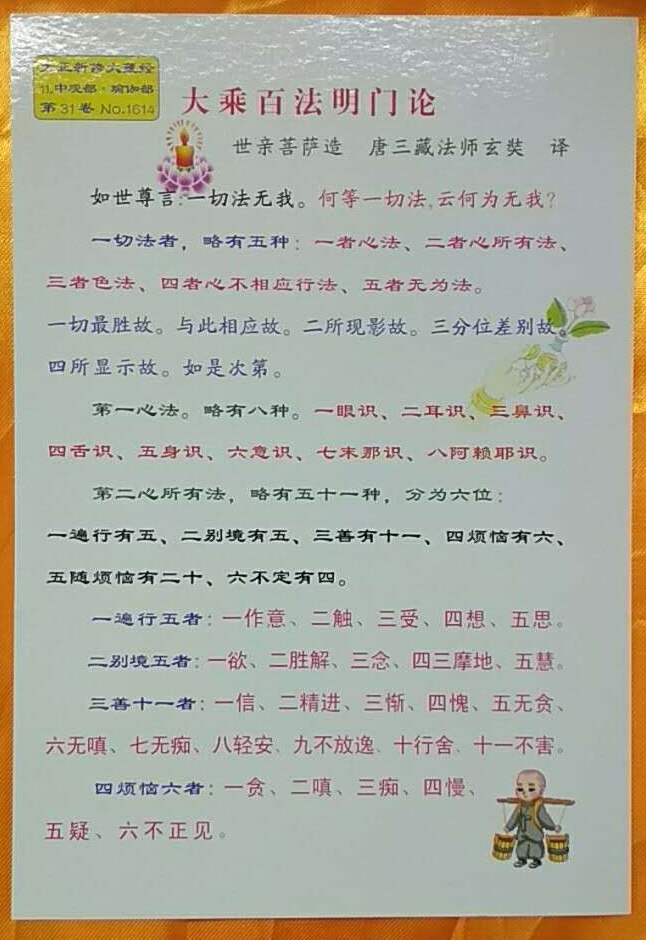 大正新修大藏经
11.中观部·瑜伽部
第31卷 No.1614
大乘百法明门论
世亲菩萨造 唐三藏法师玄奘 译
如世尊言:一切法无我。何等一切法,云何为无我?
一切法者，略有五种：一者心法、二者心所有法、
三者色法、四者心不相应行法、五者无为法。
一切最胜故。与此相应故。二所现影故。三分位差别故。
四所显示故。如是次第。
第一心法。略有八种。一眼识、二耳识、三鼻识、
四舌识、五身识、六意识、七末那识、八阿赖耶识。
第二心所有法，略有五十一种，分为六位：
一遍行有五、二别境有五、三善有十一、四烦恼有六、
五随烦恼有二十、六不定有四。
一遍行五者：一作意、二触、三受、四想、五思。
二别境五者：一欲、二胜解、三念、四三摩地、五慧。
三善十一者：一信、二精进、三惭、四愧、五无贪、
六无嗔、七无痴、八轻安、九不放逸、十行舍、十一不害。
四烦恼六者：一贪、二嗔、三痴、四慢、
五疑、六不正见。